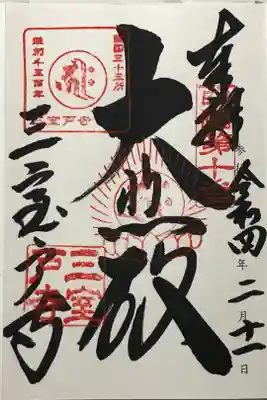 奉拝
令和四年二月十一日
大悲殿
三室戸寺
西国三十三所
草創千三百年
三室戸寺
西国第十番
三室戸寺